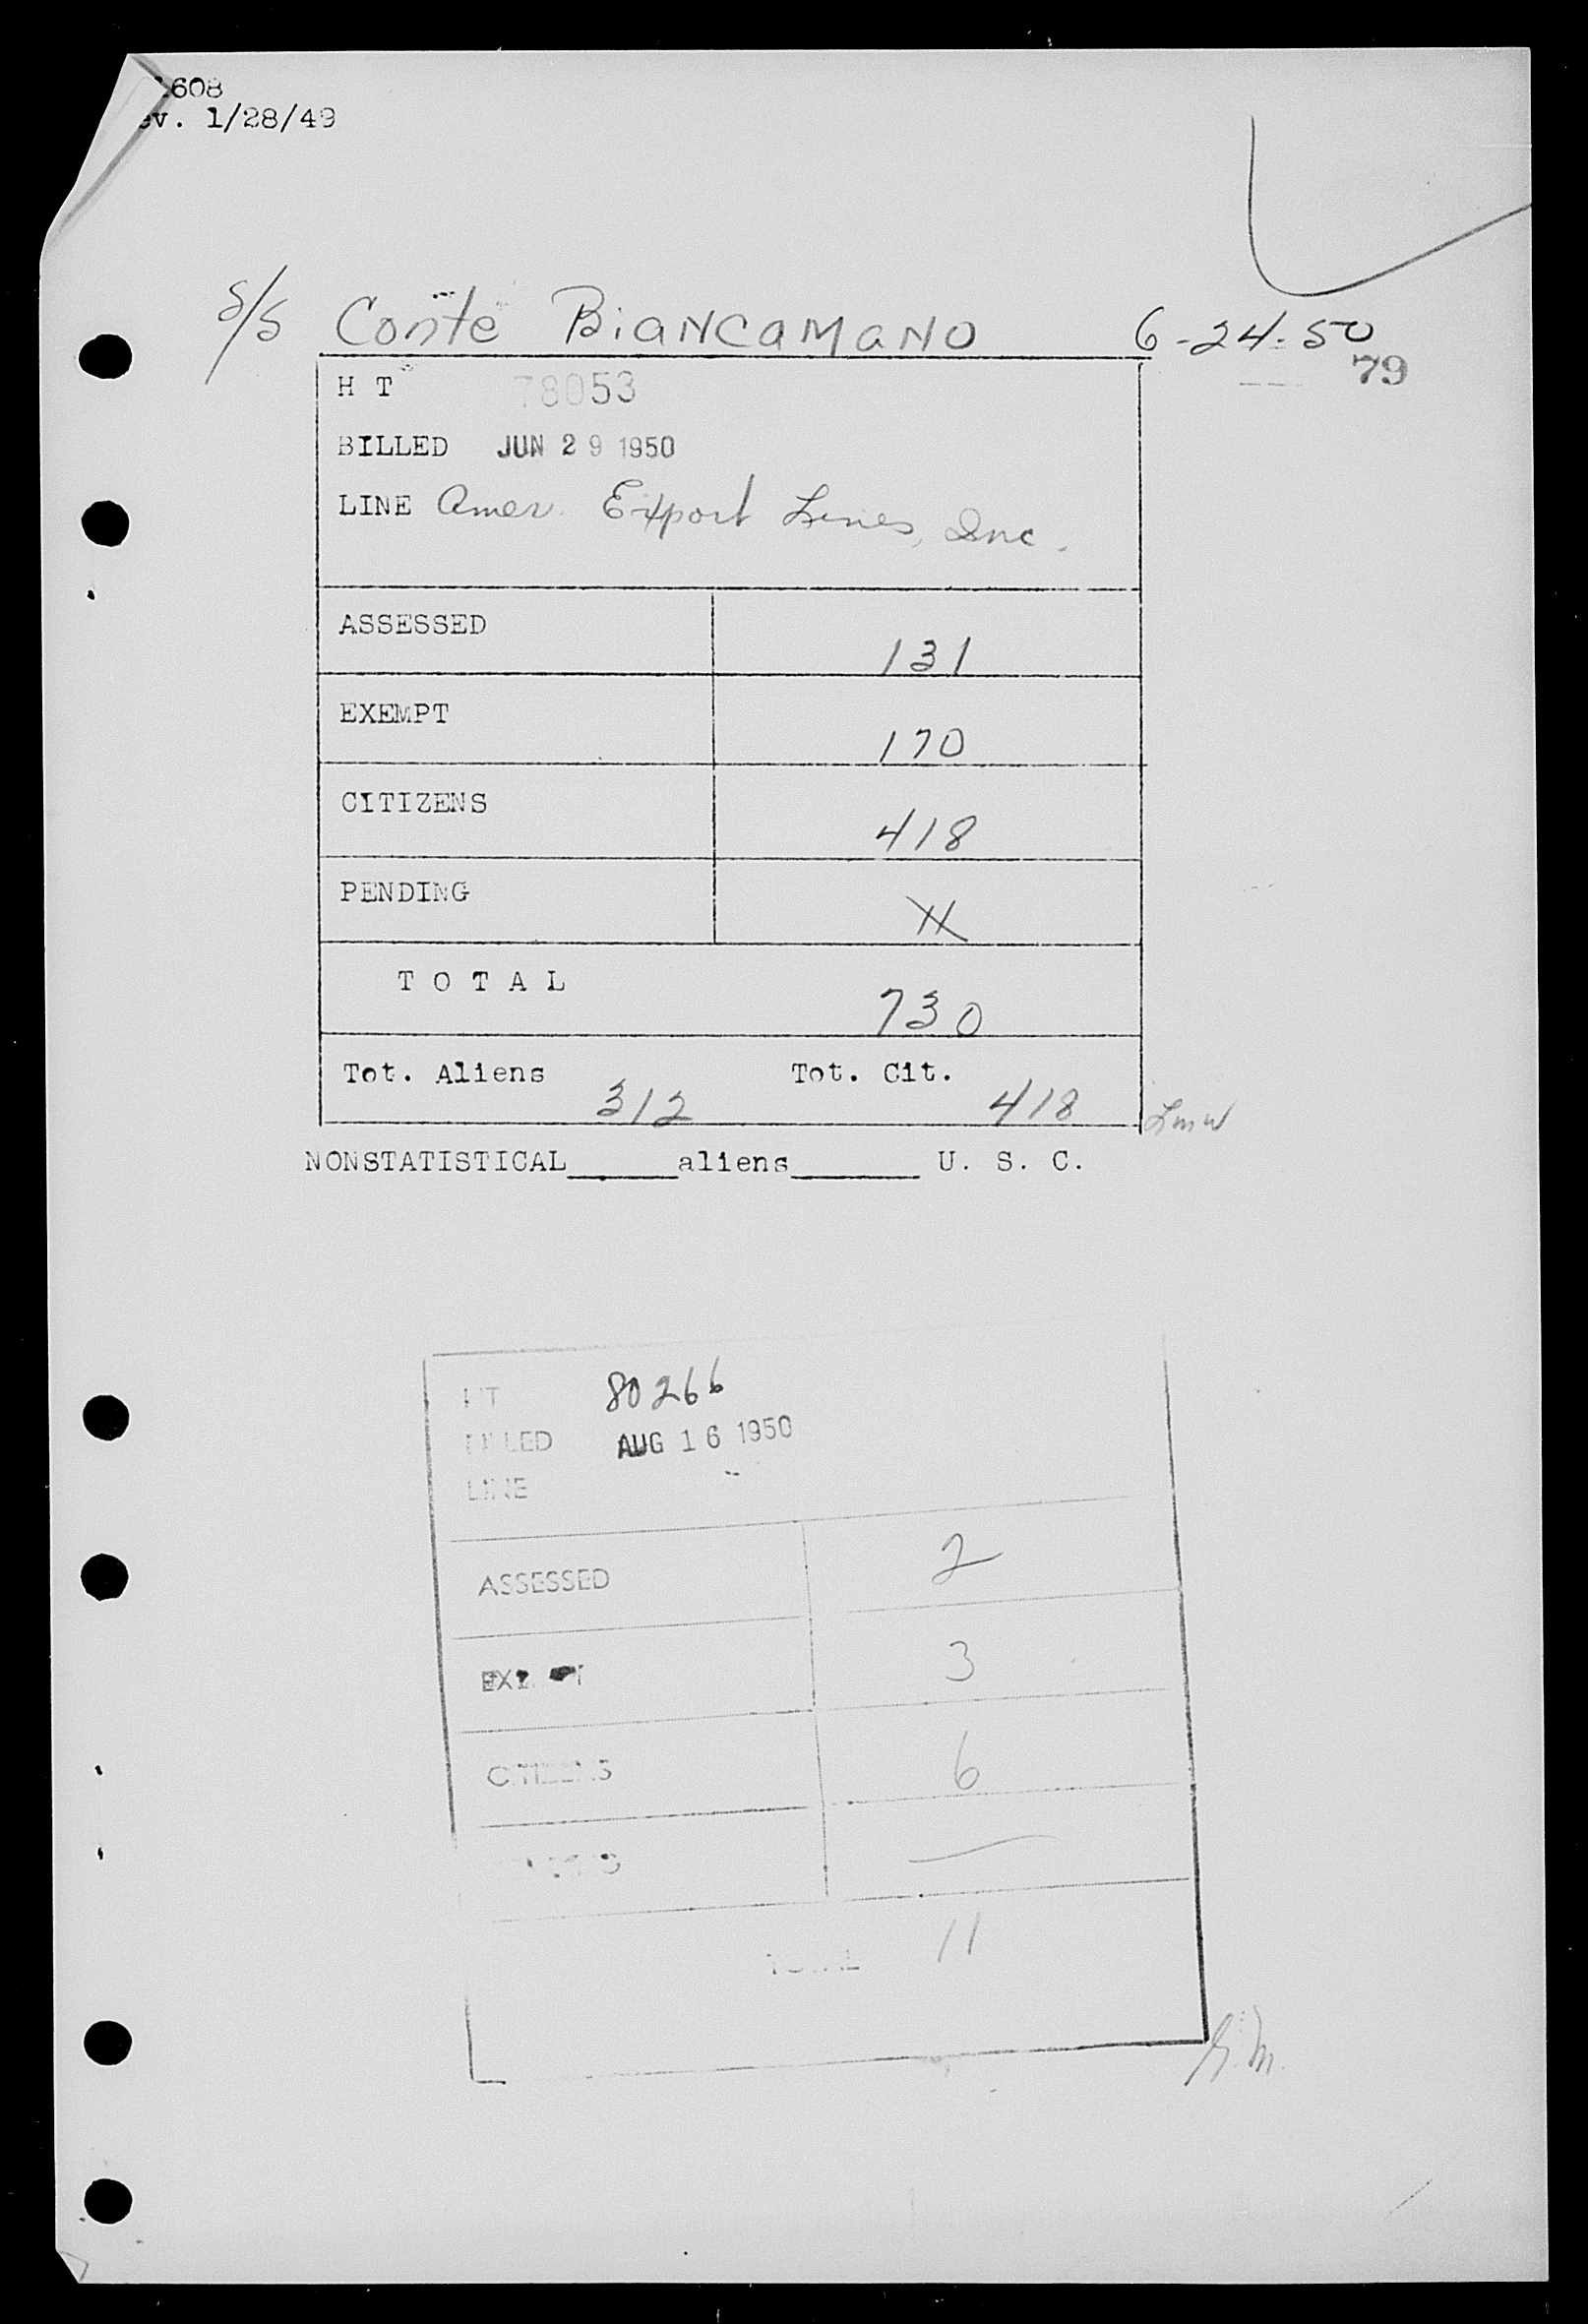 1608
ev. 1/28/49
S/S Conte BiaNCaMaNO 6-24-50
79
H T 78053
BILLED JUN 29 1950
LINE Amer. Export Lines, Inc.
ASSESSED 131
EXEMPT 170
CITIZENS 418
PENDING
TOTAL 730
Tot. Aliens 312 Tot. Cit. 418 Lmw
NONSTATISTICAL aliens U. S. C.
HT 80266
BILLED AUG 16 1950
LINE
ASSESSED 2
EXEMPT 3
CITIZENS 6
TOTAL 11